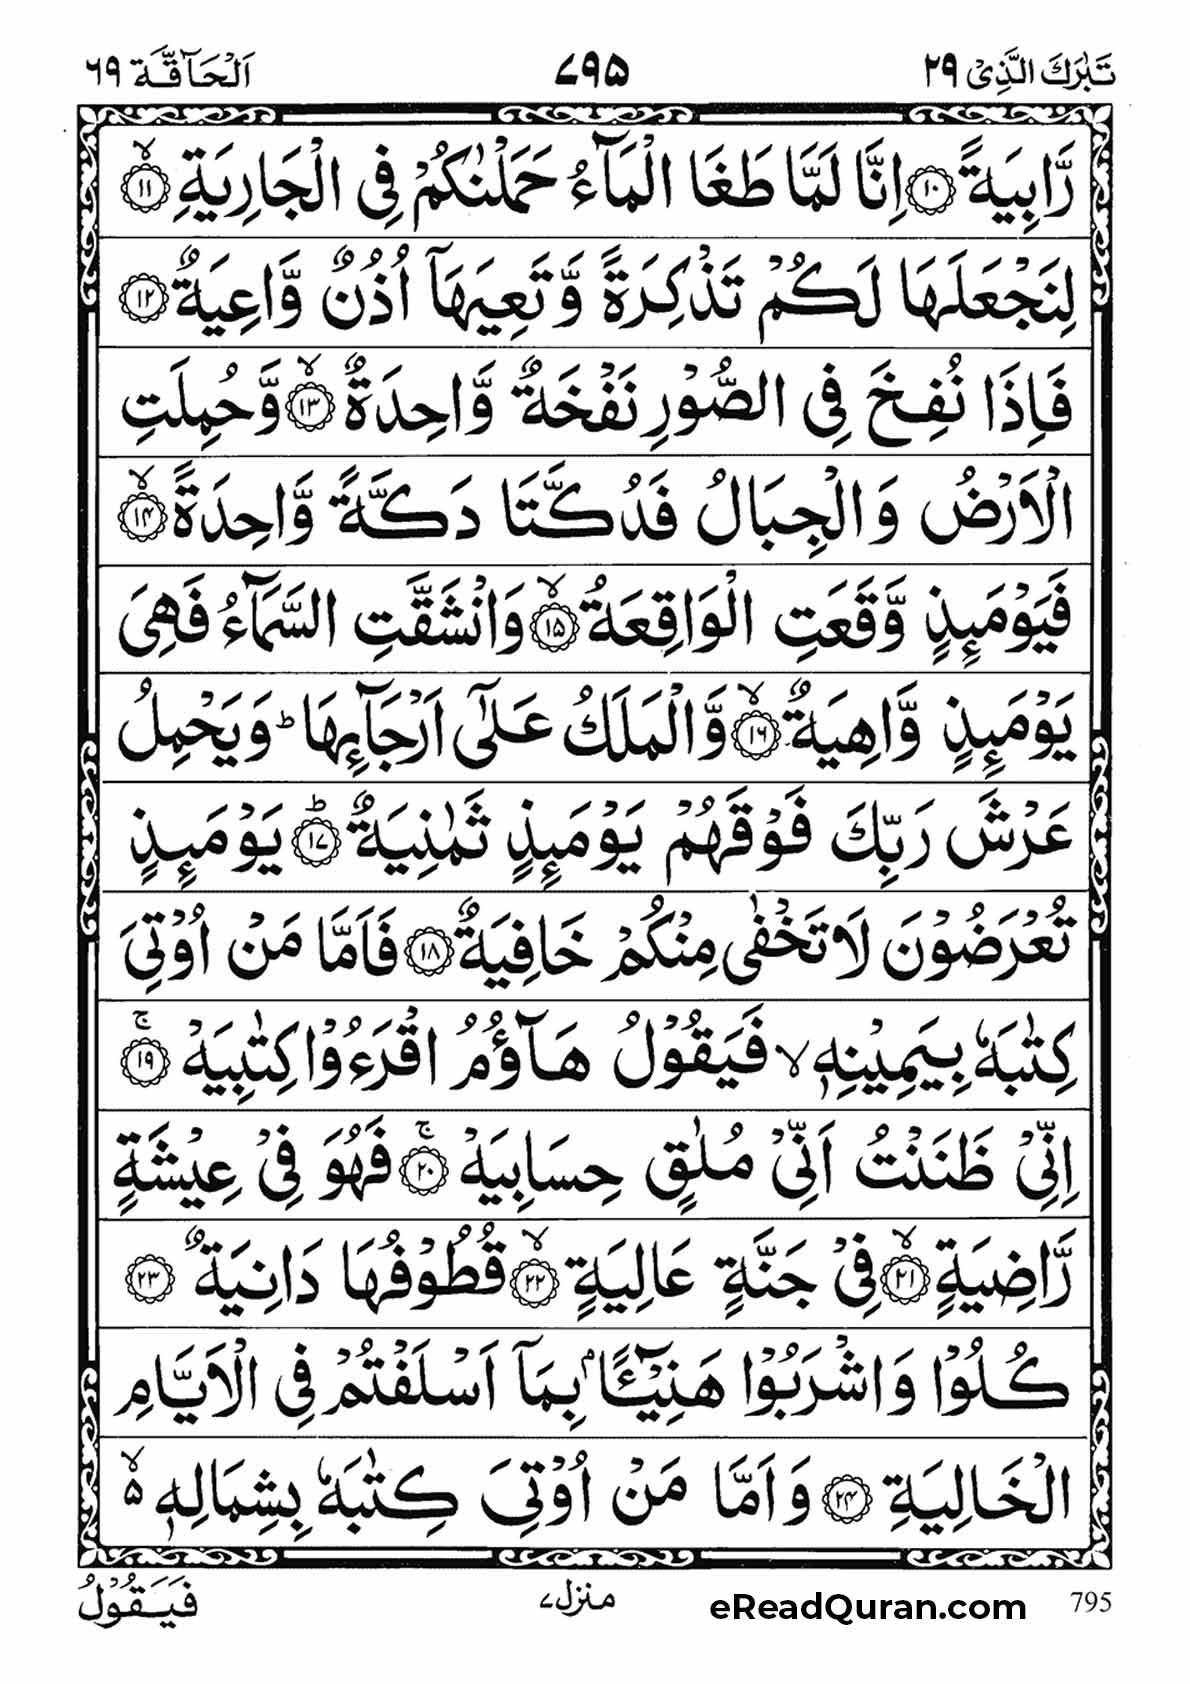 تَبٰرَكَ الَّذِىْ ٢٩ ٧٩٥ اَلْحَآقَّة ٦٩
رَّابِيَةً ۝١٠ اِنَّا لَمَّا طَغَا الْمَآءُ حَمَلْنٰكُمْ فِى الْجَارِيَةِ ۝١١ۙ
لِنَجْعَلَهَا لَكُمْ تَذْكِرَةً وَّتَعِيَهَآ اُذُنٌ وَّاعِيَةٌ ۝١٢
فَاِذَا نُفِخَ فِى الصُّوْرِ نَفْخَةٌ وَّاحِدَةٌ ۝١٣ۙ وَّحُمِلَتِ
الْاَرْضُ وَالْجِبَالُ فَدُكَّتَا دَكَّةً وَّاحِدَةً ۝١٤ۙ
فَيَوْمَئِذٍ وَّقَعَتِ الْوَاقِعَةُ ۝١٥ۙ وَانْشَقَّتِ السَّمَآءُ فَهِىَ
يَوْمَئِذٍ وَّاهِيَةٌ ۝١٦ۙ وَّالْمَلَكُ عَلٰٓى اَرْجَآئِهَا ؕ وَيَحْمِلُ
عَرْشَ رَبِّكَ فَوْقَهُمْ يَوْمَئِذٍ ثَمٰنِيَةٌ ۝١٧ؕ يَوْمَئِذٍ
تُعْرَضُوْنَ لَا تَخْفٰى مِنْكُمْ خَافِيَةٌ ۝١٨ فَاَمَّا مَنْ اُوْتِىَ
كِتٰبَهٗ بِيَمِيْنِهٖ ۙ فَيَقُوْلُ هَآؤُمُ اقْرَءُوْا كِتٰبِيَهْ ۝١٩ۚ
اِنِّىْ ظَنَنْتُ اَنِّىْ مُلٰقٍ حِسَابِيَهْ ۝٢٠ۚ فَهُوَ فِىْ عِيْشَةٍ
رَّاضِيَةٍ ۝٢١ۙ فِىْ جَنَّةٍ عَالِيَةٍ ۝٢٢ۙ قُطُوْفُهَا دَانِيَةٌ ۝٢٣
كُلُوْا وَاشْرَبُوْا هَنِيْٓئًاۢ بِمَآ اَسْلَفْتُمْ فِى الْاَيَّامِ
الْخَالِيَةِ ۝٢٤ وَاَمَّا مَنْ اُوْتِىَ كِتٰبَهٗ بِشِمَالِهٖ ۵ۙ
فَيَقُوْلُ منزل٧ eReadQuran.com 795